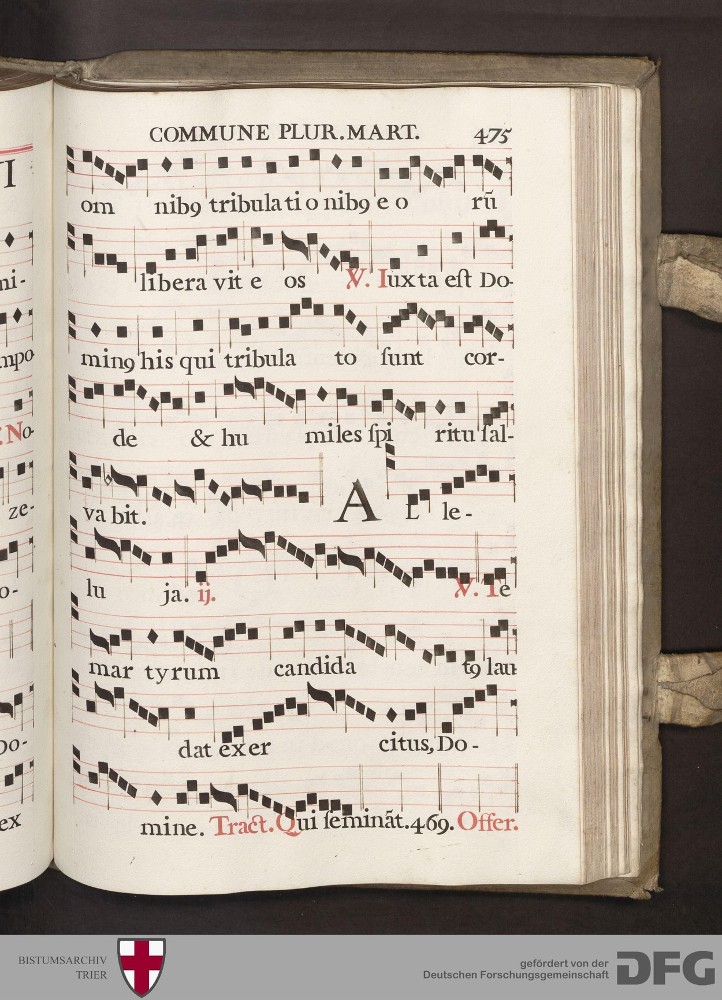 COMMUNE PLUR.MART. 475
om nib9 tribulationib9 eo rũ
liberavit eos V. Iuxta est Do-
min9 his qui tribula to sunt cor-
de & humiles spi ritu sal-
vabit. AL le-
lu ja. ij. V. Te
martyrum candida t9 lau
dat exer citus, Do-
mine. Tract. Qui seminãt.469. Offer.
VI
ni-
mpo
:No-
ze-
o-
Do-
ex
BISTUMSARCHIV
TRIER
gefördert von der
Deutschen Forschungsgemeinschaft
DFG